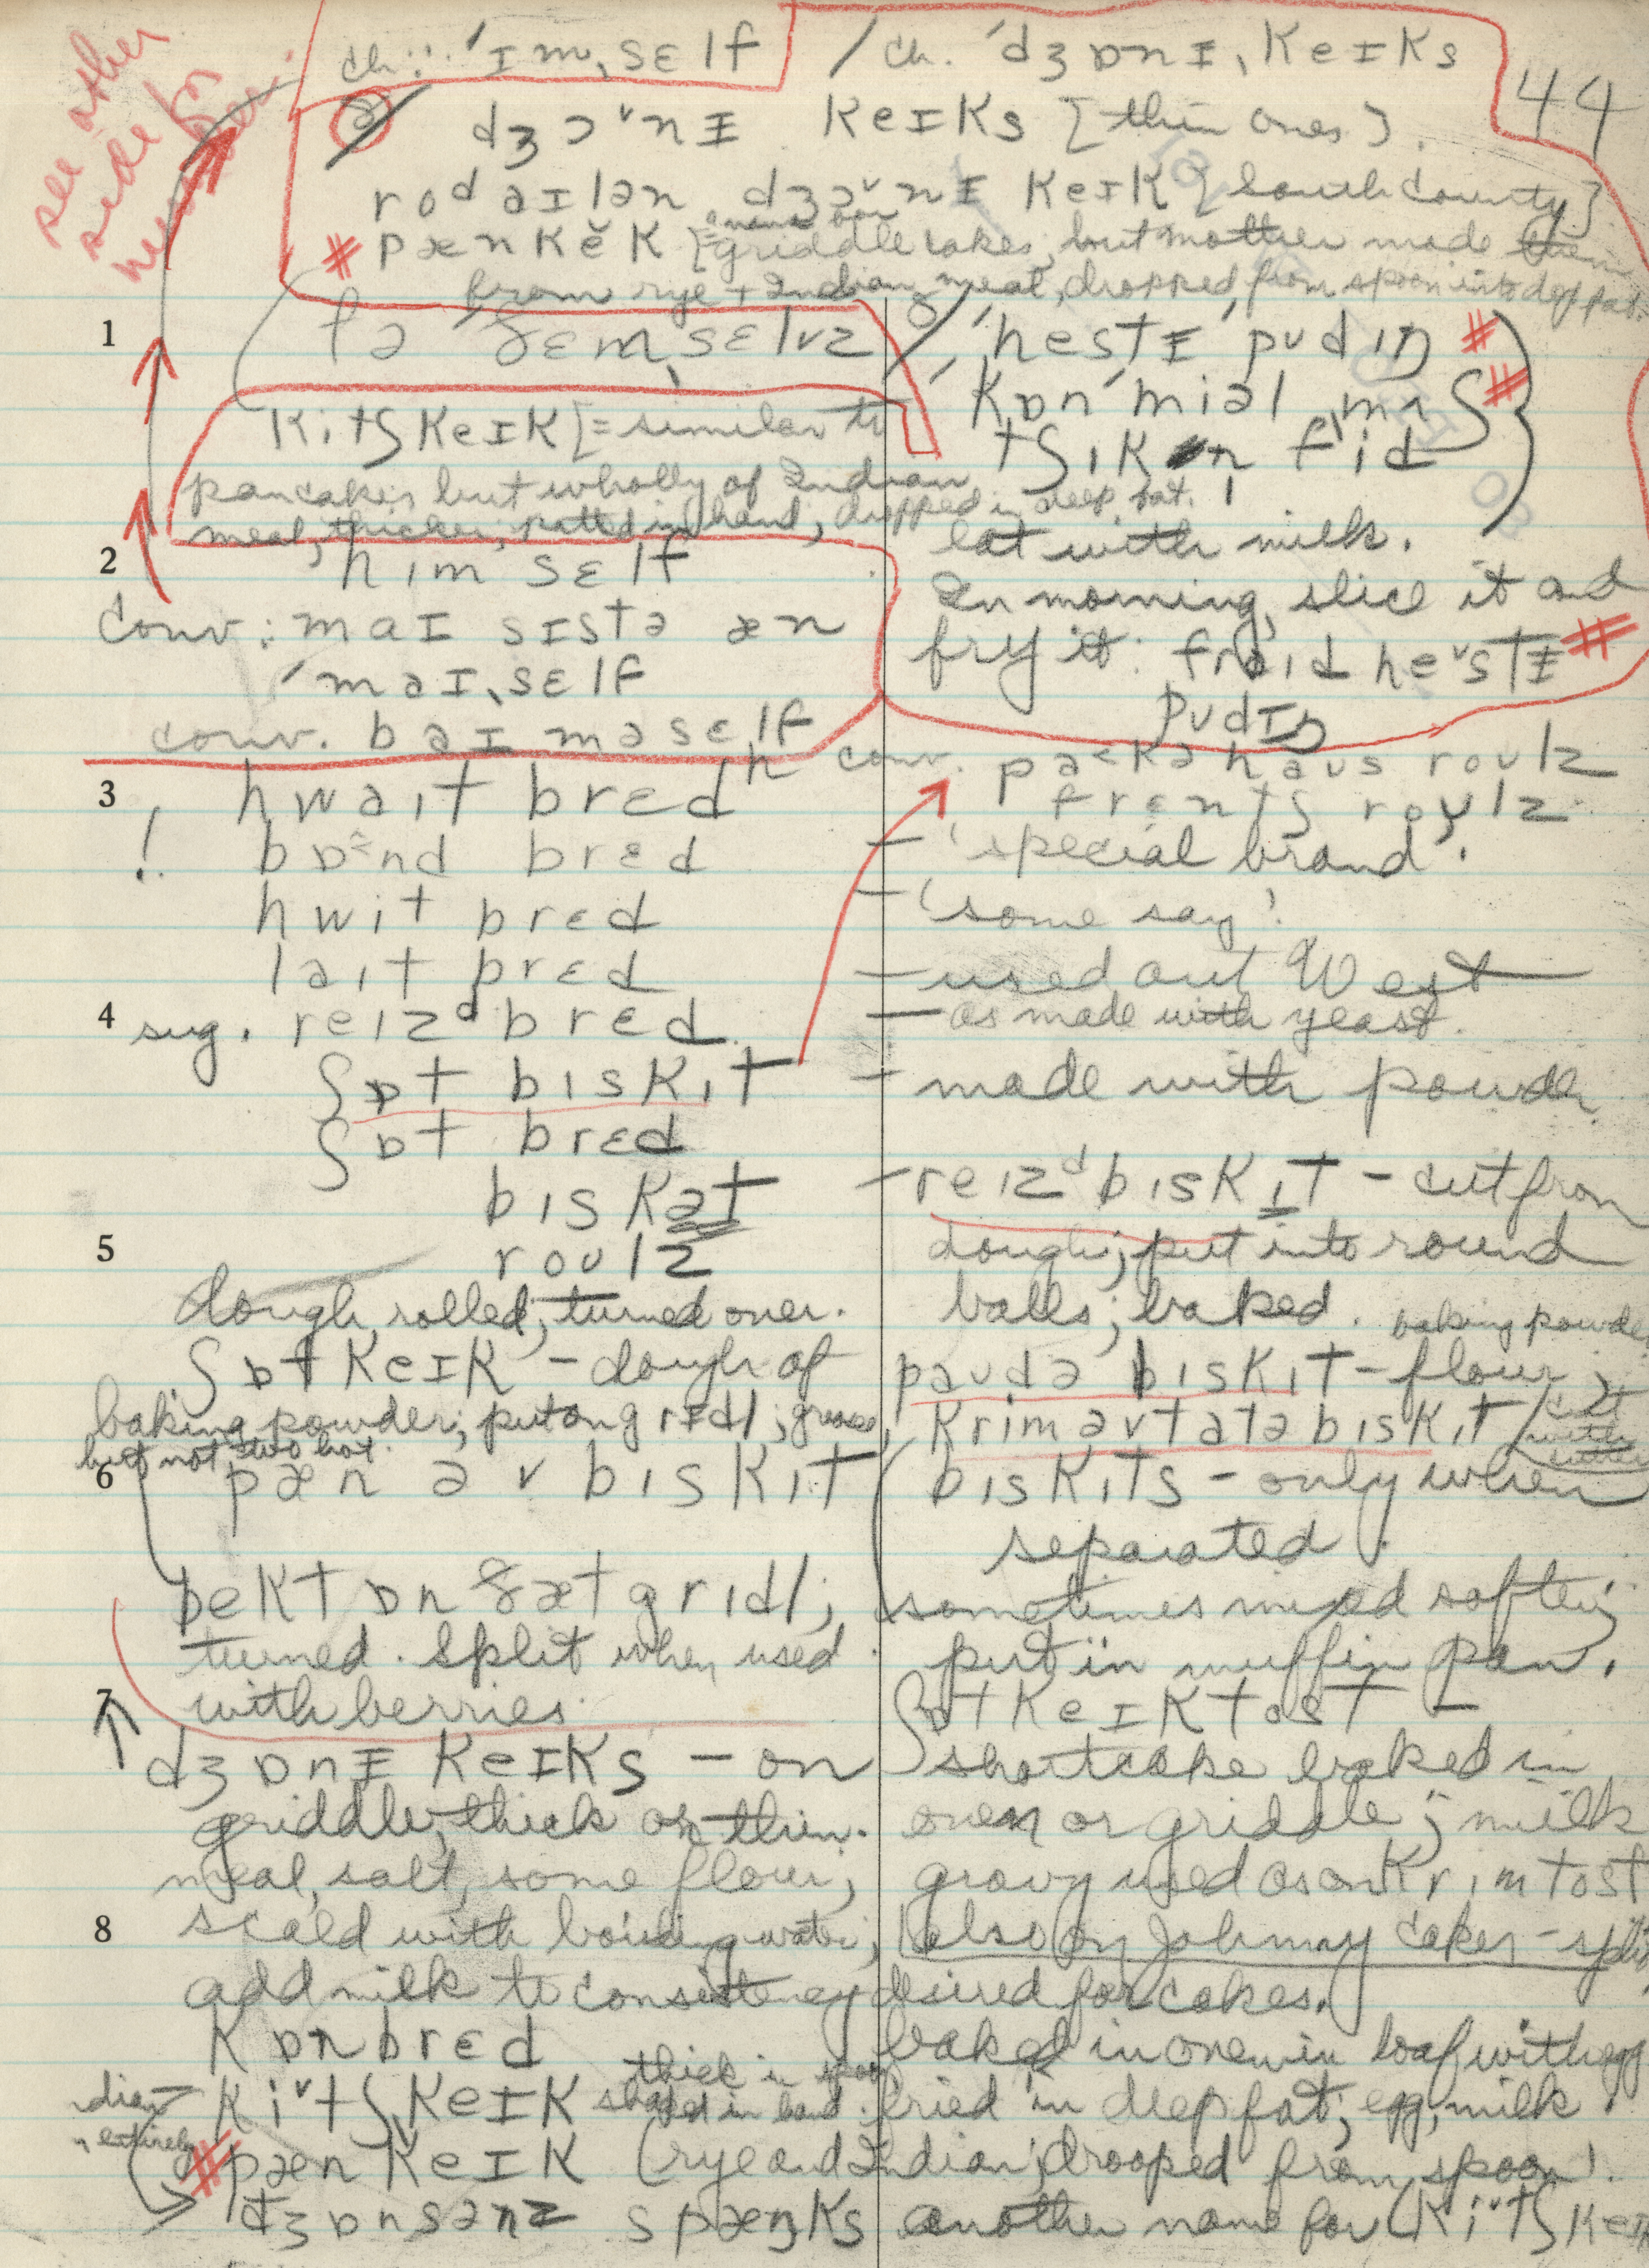 see other
side for
ch: 'ɪm,sɛlf / ch. 'dʒɒnɪ,keɪks
44
dʒɔ˅nɪ keɪks [thin ones].
rodaɪlən dʒɔ˅nɪ keɪk [South County]
# pænkĕk [= griddle cakes, but mother made them
from rye + Indian meal, dropped from spoon into deep fat.
1 fə ðɛm,sɛlvz
'hestɪ pʊdɪŋ #
kɒn'miəl mʌʃ #
tʃɪkɪn fid
kitʃkeɪk [= similar to
pancakes but wholly of Indian
meal, thicker, patted in hand, dropped in deep fat.
Eat with milk.
2 hɪmsɛlf
In morning, slice it and
conv: maɪ sɪstə æn
fry it: fraɪd he˅stɪ #
'maɪ,sɛlf
pʊdɪŋ
conv. baɪ masɛlf
conv. paɛkəhaʊs roʊlz
frɛntʃ roʊlz.
3 hwaɪt brɛd
! bɒnd brɛd — 'special brand'.
hwit brɛd — 'some say'.
laɪt brɛd — used out West
4 sug. reɪzd brɛd — as made with yeast.
ʃɒt bɪskɪt — made with powder
ʃɒt brɛd
bɪskət — reɪzd bɪskɪt — cut from
5 roʊlz
dough; put into round
dough rolled, turned over.
balls; baked. baking powder
ʃɒtkeɪk — dough of
paʊdə bɪskɪt — flour,
baking powder; put on grɪdl; grease,
but not too hot.
krimətatə bɪskɪt cut with cutter
6 pæn əv bɪskɪt
bɪskɪts — only when
separated.
bekt ɒn ðæt grɪdl;
sometimes mixed softer;
turned. Split when used
put in muffin pan.
7 with berries.
ʃɒtkeɪk tost —
dʒɒnɪ keɪks — on
shortcake baked in
griddle, thick or thin.
oven or griddle; milk
meal, salt, some flour;
gravy used as on krim tost
8 scald with boiling water;
also on Johnny cakes — split
add milk to consistency desired for cakes.
kɒnbrɛd baked in oven in loaf with egg
ki˅tʃkeɪk shaped in hand. fried in deep fat; egg, milk.
entirely
# pænkeɪk (rye and Indian; dropped from spoon).
dʒɒnsənz spæŋks another name for (ki˅tʃkeɪk